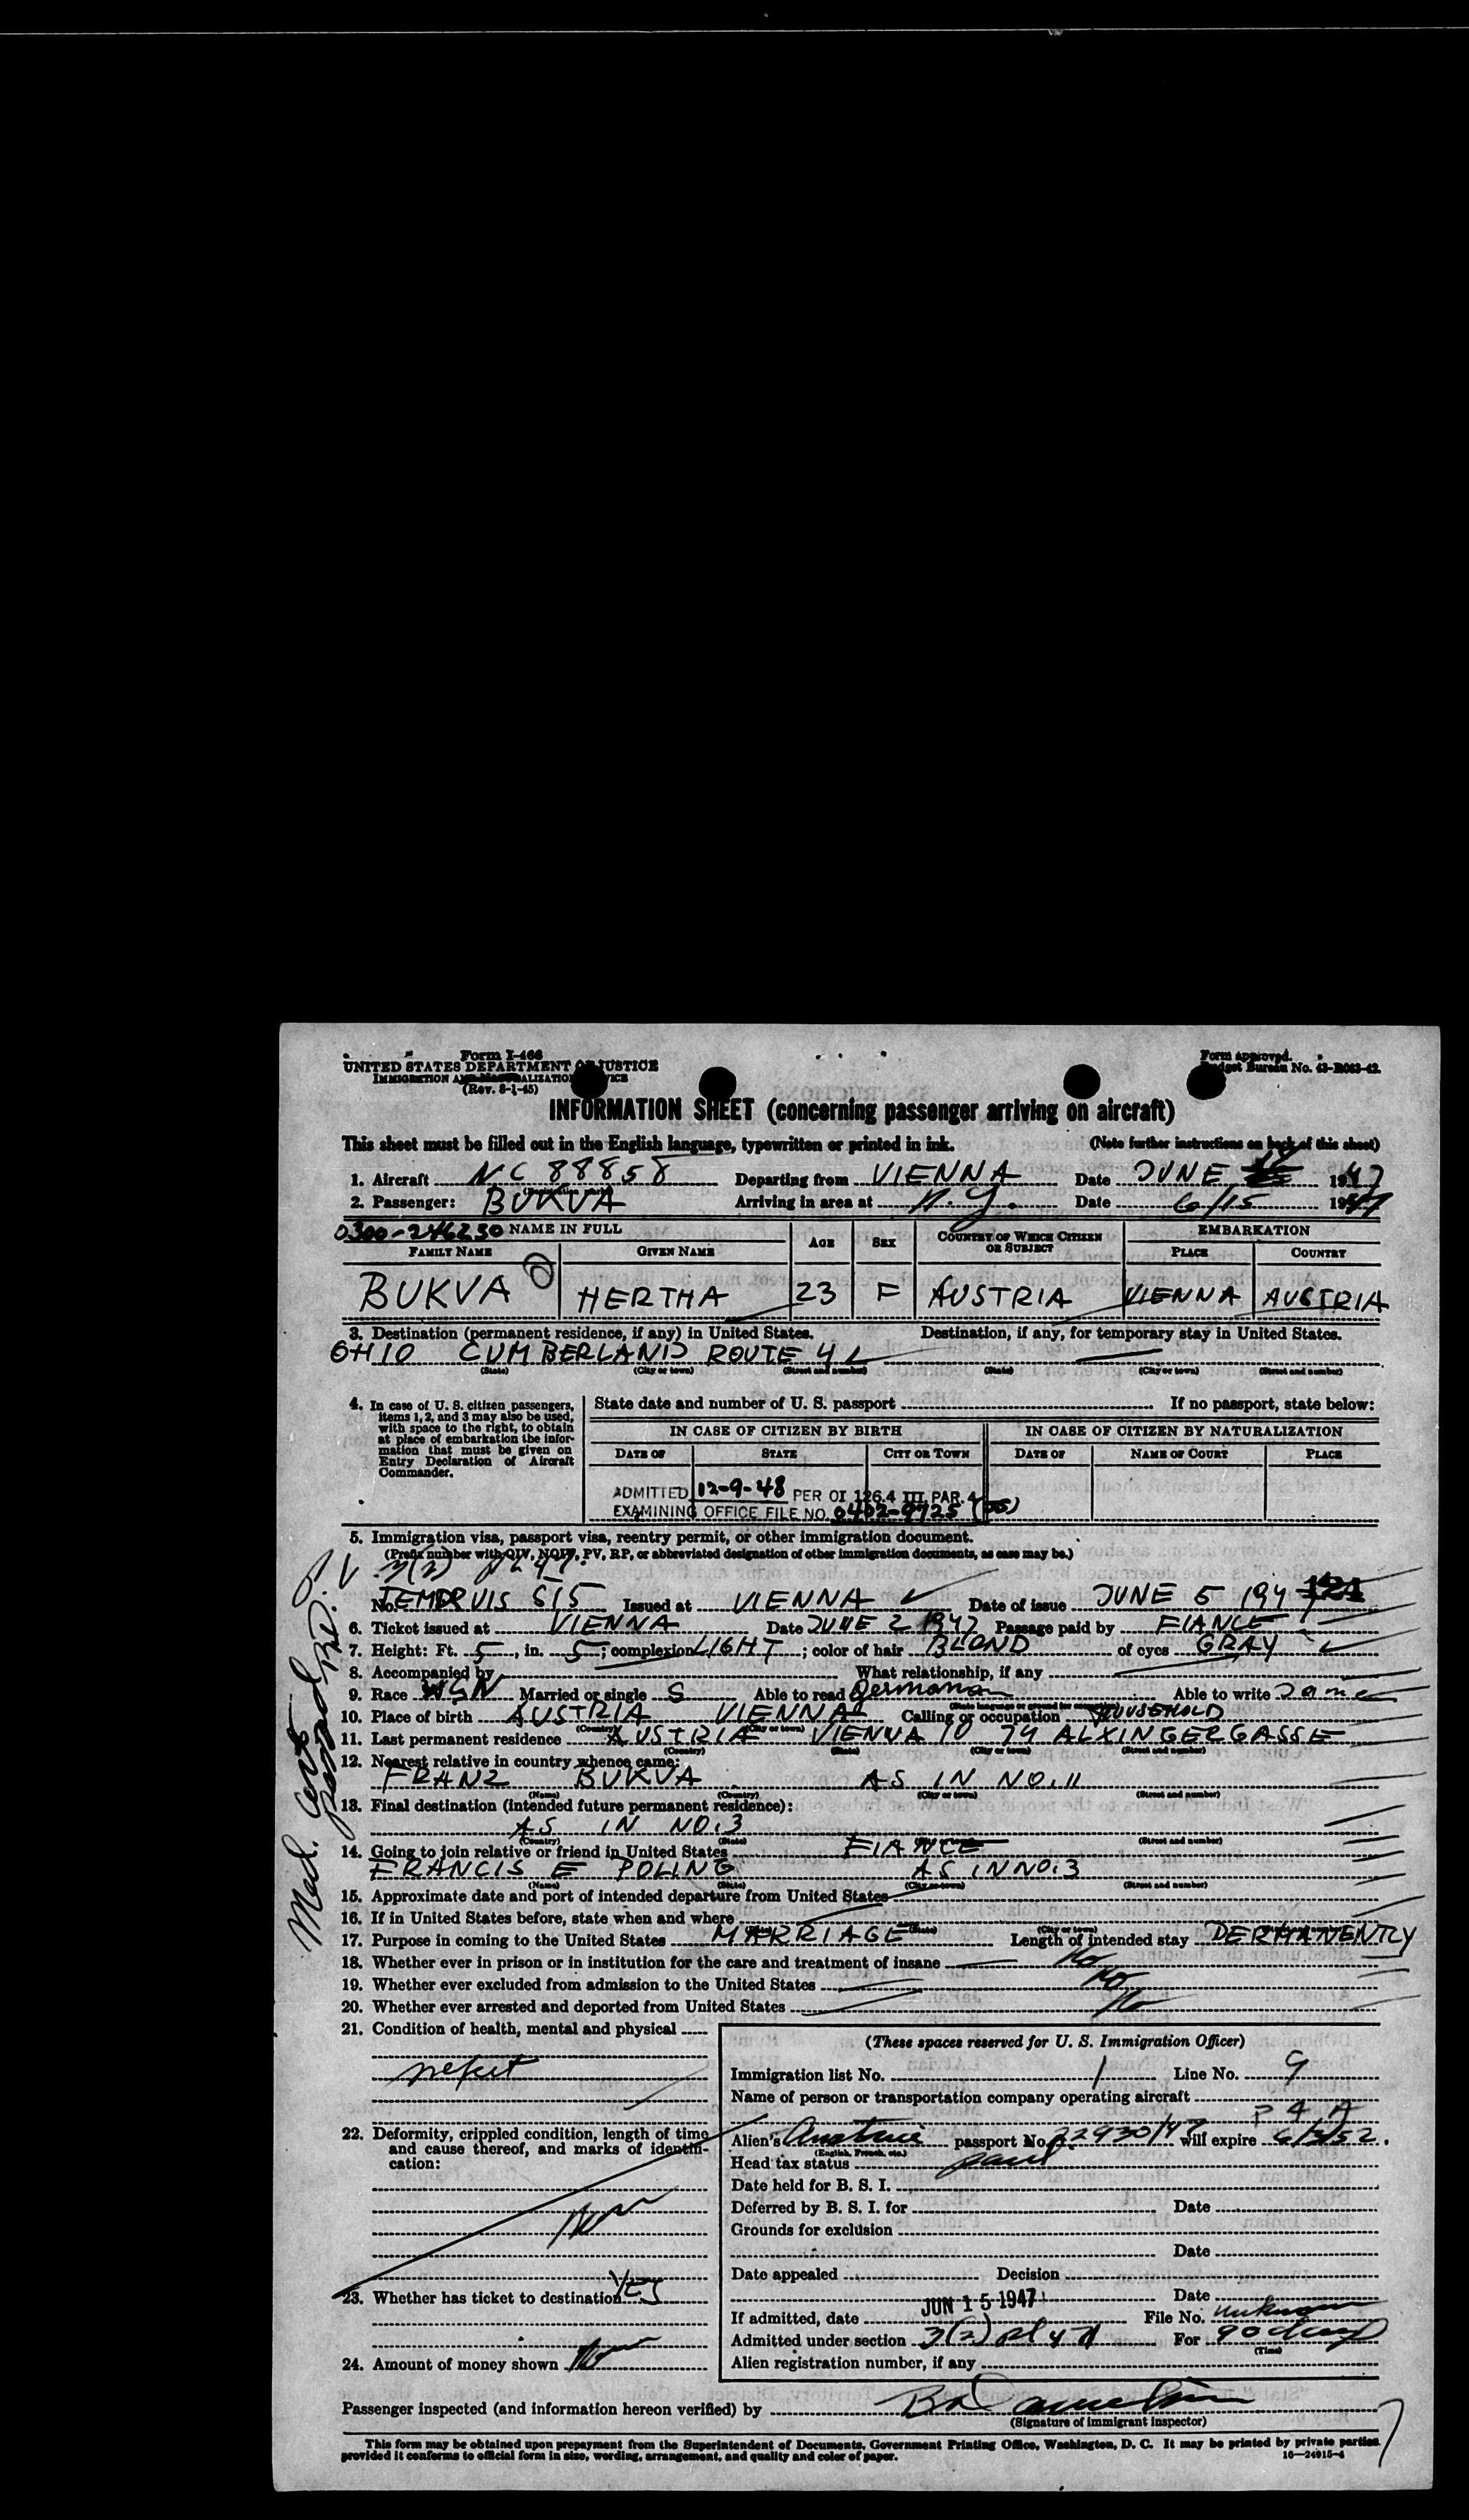 Form I-466
UNITED STATES DEPARTMENT OF JUSTICE
IMMIGRATION AND NATURALIZATION SERVICE
(Rev. 8-1-45)
Form approved.
Budget Bureau No. 43-R083-42.
INFORMATION SHEET (concerning passenger arriving on aircraft)
This sheet must be filled out in the English language, typewritten or printed in ink. (Note further instructions on back of this sheet)
1. Aircraft NC 88858 Departing from VIENNA Date JUNE 1947
2. Passenger: BUKVA Arriving in area at N.Y. Date 6/15 1947
0300-246230 NAME IN FULL AGE SEX COUNTRY OF WHICH CITIZEN OR SUBJECT EMBARKATION
FAMILY NAME GIVEN NAME PLACE COUNTRY
BUKVA HERTHA 23 F AUSTRIA VIENNA AUSTRIA
3. Destination (permanent residence, if any) in United States. Destination, if any, for temporary stay in United States.
OHIO CUMBERLAND ROUTE 4
(State) (City or town) (Street and number) (State) (City or town) (Street and number)
4. In case of U. S. citizen passengers, items 1, 2, and 3 may also be used, with space to the right, to obtain at place of embarkation the information that must be given on Entry Declaration of Aircraft Commander.
State date and number of U. S. passport If no passport, state below:
IN CASE OF CITIZEN BY BIRTH IN CASE OF CITIZEN BY NATURALIZATION
DATE OF STATE CITY OR TOWN DATE OF NAME OF COURT PLACE
ADMITTED 12-9-48 PER OI 126.4 III PAR. 4
EXAMINING OFFICE FILE NO. 0402-9725
5. Immigration visa, passport visa, reentry permit, or other immigration document.
(Prefix number with QIV, NQIV, PV, RP, or abbreviated designation of other immigration documents, as case may be.)
3(2) PL 471
No. TEMPR VIS 515 Issued at VIENNA Date of issue JUNE 5 194
6. Ticket issued at VIENNA Date JUNE 2 1947 Passage paid by FIANCE
7. Height: Ft. 5, in. 5; complexion LIGHT; color of hair BLOND of eyes GRAY
8. Accompanied by What relationship, if any
9. Race Married or single S Able to read German Able to write same
(State language or ground for exemption)
10. Place of birth AUSTRIA VIENNA Calling or occupation HOUSEHOLD
(Country) (City or town)
11. Last permanent residence AUSTRIA VIENNA 10 74 ALXINGERGASSE
(Country) (State) (City or town) (Street and number)
12. Nearest relative in country whence came:
FRANZ BUKVA AS IN NO. 11
(Name) (Country) (City or town) (Street and number)
13. Final destination (intended future permanent residence):
AS IN NO. 3
(Country) (State) (City or town) (Street and number)
14. Going to join relative or friend in United States FIANCE
FRANCIS E POLING AS IN NO. 3
(Name) (State) (City or town) (Street and number)
15. Approximate date and port of intended departure from United States
16. If in United States before, state when and where
(State) (City or town) (Street and number)
17. Purpose in coming to the United States MARRIAGE Length of intended stay PERMANENTLY
18. Whether ever in prison or in institution for the care and treatment of insane No
19. Whether ever excluded from admission to the United States No
20. Whether ever arrested and deported from United States No
Med. Cert.
21. Condition of health, mental and physical
22. Deformity, crippled condition, length of time and cause thereof, and marks of identification:
23. Whether has ticket to destination YES
24. Amount of money shown
(These spaces reserved for U. S. Immigration Officer)
Immigration list No. 1 Line No. 9
Name of person or transportation company operating aircraft
P A A
Alien's passport No. 22930/47 will expire 6/3/52.
(English, French, etc.)
Head tax status paid
Date held for B. S. I.
Deferred by B. S. I. for Date
Grounds for exclusion
Date
Date appealed Decision
Date
If admitted, date JUN 15 1947 File No. unknown
Admitted under section 3(2) PL 471 For 90 days
(Time)
Alien registration number, if any
Passenger inspected (and information hereon verified) by
(Signature of immigrant inspector)
This form may be obtained upon prepayment from the Superintendent of Documents, Government Printing Office, Washington, D. C. It may be printed by private parties
provided it conforms to official form in size, wording, arrangement, and quality and color of paper.
16—24915-4